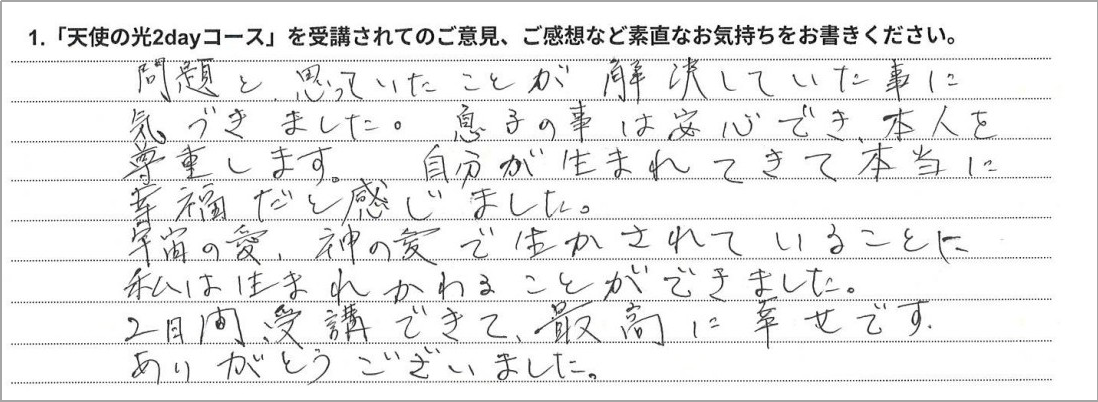 1.「天使の光2dayコース」を受講されてのご意見、ご感想など素直なお気持ちをお書きください。
問題と思っていたことが解決していた事に
気づきました。息子の事は安心でき、本人を
尊重します。自分が生まれてきて本当に
幸福だと感じました。
宇宙の愛、神の愛で生かされていることに
私は生まれかわることができました。
2日間、受講できて、最高に幸せです。
ありがとうございました。